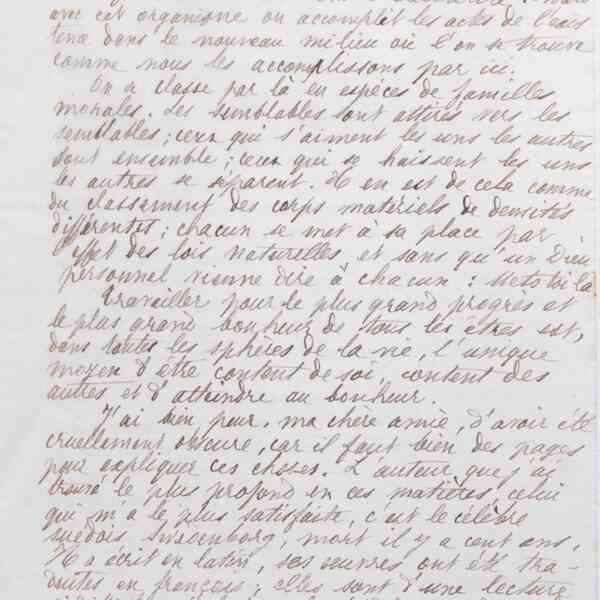 avec cet organisme on accomplit les actes de l'exis
tence dans le nouveau milieu où l'on se trouve
comme nous les accomplissons par ici.
On se classe par là en espèces de familles
morales. Les semblables sont attirés vers les
semblables ; ceux qui s'aiment les uns les autres
sont ensemble ; ceux qui se haïssent les uns
les autres se séparent. Il en est de cela comme
du classement des corps matériels de densités
différentes ; chacun se met à sa place par
l'effet des lois naturelles, et sans qu'un Dieu
personnel vienne dire à chacun : Mets toi là.
Travailler pour le plus grand progrès et
le plus grand bonheur de tous les êtres est,
dans toutes les sphères de la vie, l'unique
moyen d'être content de soi, content des
autres et d'atteindre au bonheur.
J'ai bien peur, ma chère amie, d'avoir été
cruellement obscure, car il faut bien des pages
pour expliquer ces choses. L'auteur que j'ai
trouvé le plus profond en ces matières, celui
qui m'a le plus satisfaite, c'est le célèbre
suédois Swedenborg, mort il y a cent ans.
Il a écrit en latin, ses œuvres ont été tra-
duites en français ; elles sont d'une lecture